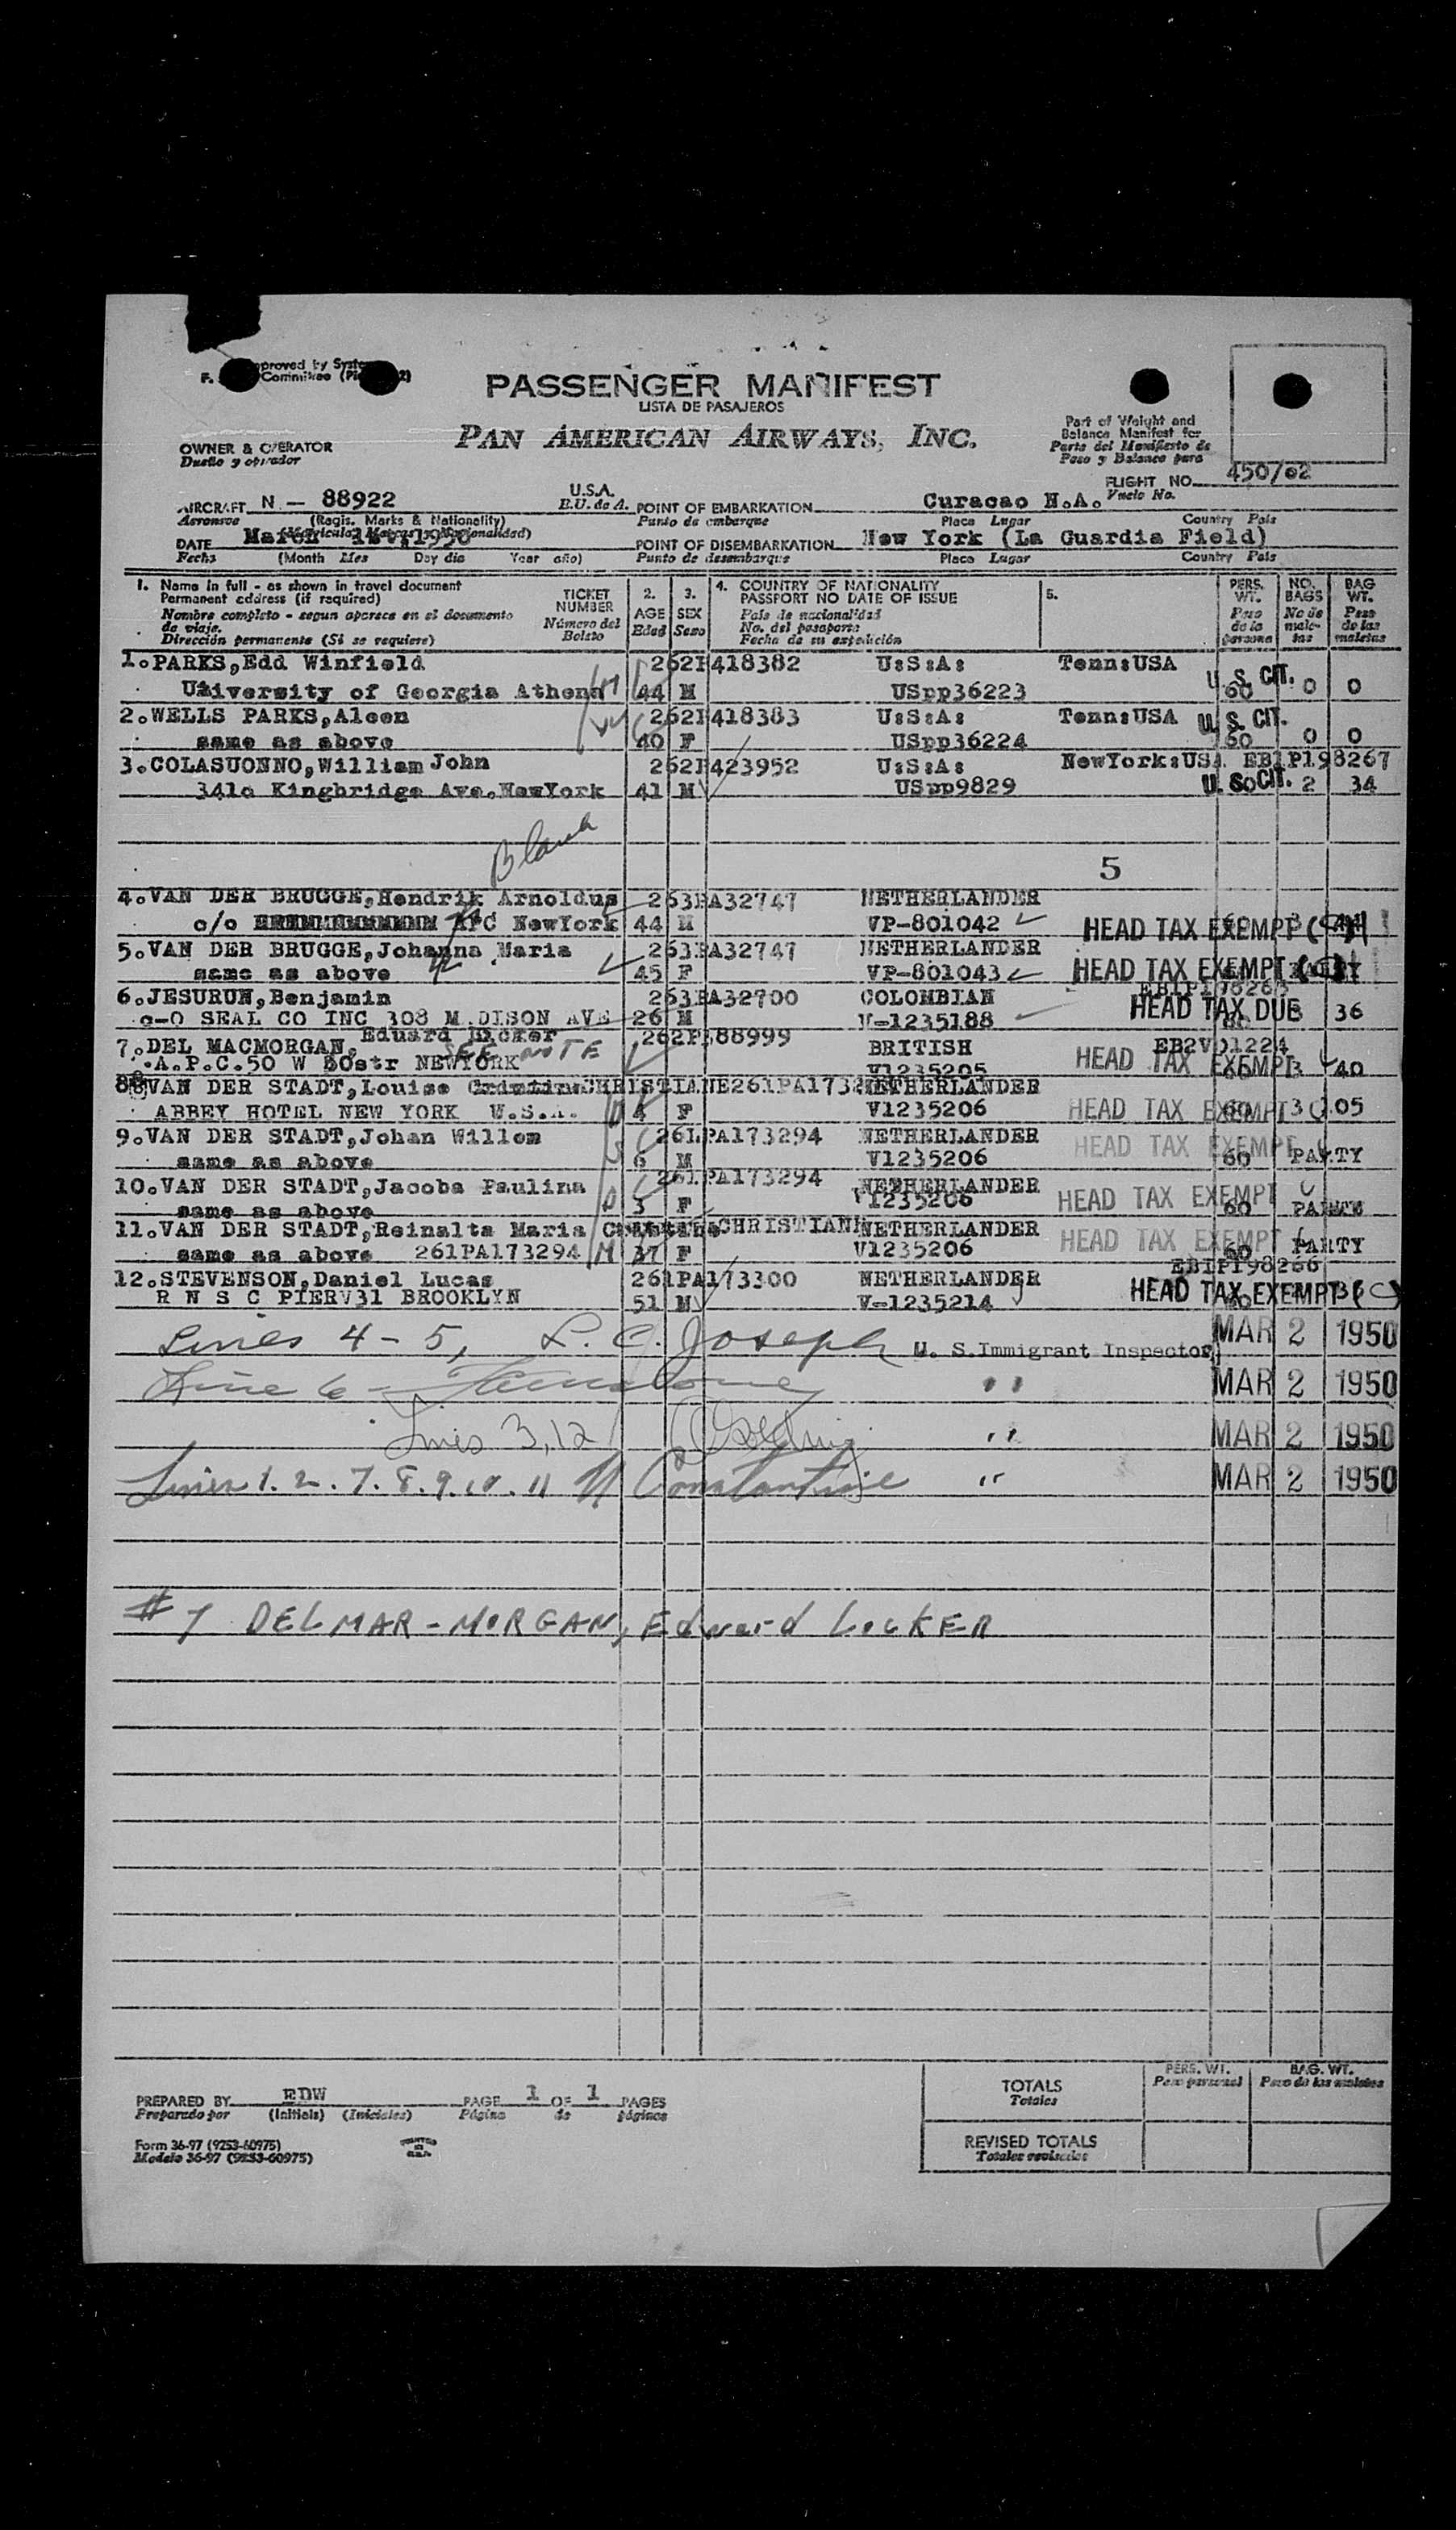 PASSENGER MANIFEST
LISTA DE PASAJEROS
PAN AMERICAN AIRWAYS, INC.
OWNER & OPERATOR
Dueño y operador
Part of Weight and
Balance Manifest for
Parte del Manifiesto de
Peso y Balance para
FLIGHT NO. 450/02
Vuelo No.
AIRCRAFT N - 88922 U.S.A. POINT OF EMBARKATION Curacao N.A.
Aeronave (Regis. Marks & Nationality) E.U. de A. Punto de embarque Place Lugar Country Pais
DATE March 1950 POINT OF DISEMBARKATION New York (La Guardia Field)
Fecha (Month Mes Day dia Year año) Punto de desembarque Place Lugar Country Pais
1. Name in full - as shown in travel document
Permanent address (if required)
Nombre completo - segun aparece en el documento
de viaje.
Dirección permanente (Si se requiere)
TICKET
NUMBER
Número del
Boleto
2.
AGE
Edad
3.
SEX
Sexo
4. COUNTRY OF NATIONALITY
PASSPORT NO DATE OF ISSUE
Pais de nacionalidad
No. del pasaporte
Fecha de su expedición
5.
PERS.
WT.
Peso
de la
persona
NO.
BAGS
No de
male-
tas
BAG
WT.
Peso
de las
maletas
1.PARKS,Edd Winfield 262P418382 U:S:A: Tenn:USA U. S. CIT.
University of Georgia Athens 44 M USpp36223 60 0 0
2.WELLS PARKS,Aleen 262P418383 U:S:A: Tenn:USA U. S. CIT.
same as above 40 F USpp36224 60 0 0
3.COLASUONNO,William John 262P423952 U:S:A: NewYork:USA EB1P198267
341o Kingbridge Ave.NewYork 41 M USpp9829 U. S. CIT. 2 34
Blank
5
4.VAN DER BRUGGE,Hendrik Arnoldus 263PA32747 NETHERLANDER
c/o APC NewYork 44 M VP-801042 HEAD TAX EXEMPT (C)
5.VAN DER BRUGGE,Johanna Maria 263PA32747 NETHERLANDER
same as above 45 F VP-801043 HEAD TAX EXEMPT (C)
6.JESURUN,Benjamin 263PA32700 COLOMBIAN
c-O SEAL CO INC 308 MADISON AVE 26 M V-1235188 HEAD TAX DUE 36
7.DEL MACMORGAN, Eduard Locker 262P388999 BRITISH EB2V01224
SEE NOTE
A.P.C.50 W 50str NEWYORK V1235205 HEAD TAX EXEMPT 3 40
8.VAN DER STADT,Louise CHRISTIANE 261PA1732 NETHERLANDER
ABBEY HOTEL NEW YORK U.S.A. 4 F V1235206 HEAD TAX EXEMPT 60 3 105
9.VAN DER STADT,Johan Willem 261PA173294 NETHERLANDER
same as above 6 M V1235206 HEAD TAX EXEMPT 60 PARTY
10.VAN DER STADT,Jacoba Paulina 261PA173294 NETHERLANDER
same as above 3 F V1235206 HEAD TAX EXEMPT 60 PARTY
11.VAN DER STADT,Reinalta Maria CHRISTIANI NETHERLANDER
same as above 261PA173294 M 37 F V1235206 HEAD TAX EXEMPT 60 PARTY
12.STEVENSON,Daniel Lucas 261PA173300 NETHERLANDER EB1P198266
R N S C PIER 31 BROOKLYN 51 M V-1235214 HEAD TAX EXEMPT (C)
Lines 4-5, L. C. Joseph U. S. Immigrant Inspector, MAR 2 1950
Line 6 - " MAR 2 1950
Lines 3,12 " MAR 2 1950
Lines 1. 2. 7. 8. 9. 10. 11 Constantine " MAR 2 1950
#7 DELMAR-MORGAN, Edward LOCKER
PREPARED BY EDW PAGE 1 OF 1 PAGES
Preparado por (Initials) (Iniciales) Página de páginas
Form 36-97 (9253-60975)
Modelo 36-97 (9253-60975)
PERS. WT.
Peso personal
BAG. WT.
Peso de las maletas
TOTALS
Totales
REVISED TOTALS
Totales revisados